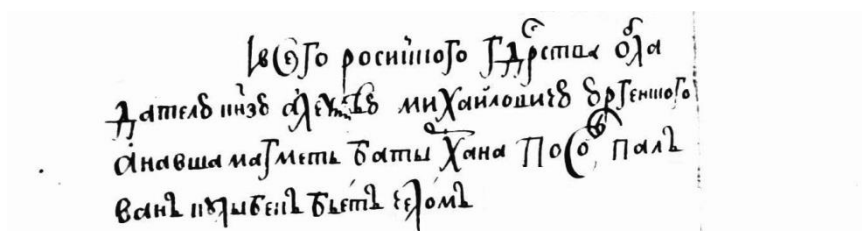 івсего росииского гдрства обла
дателю кнзю алеѯѣю михайловичю юргенского
анавша магметь баты хана посо палъ
ванъ кулыбекъ бьетъ челомъ